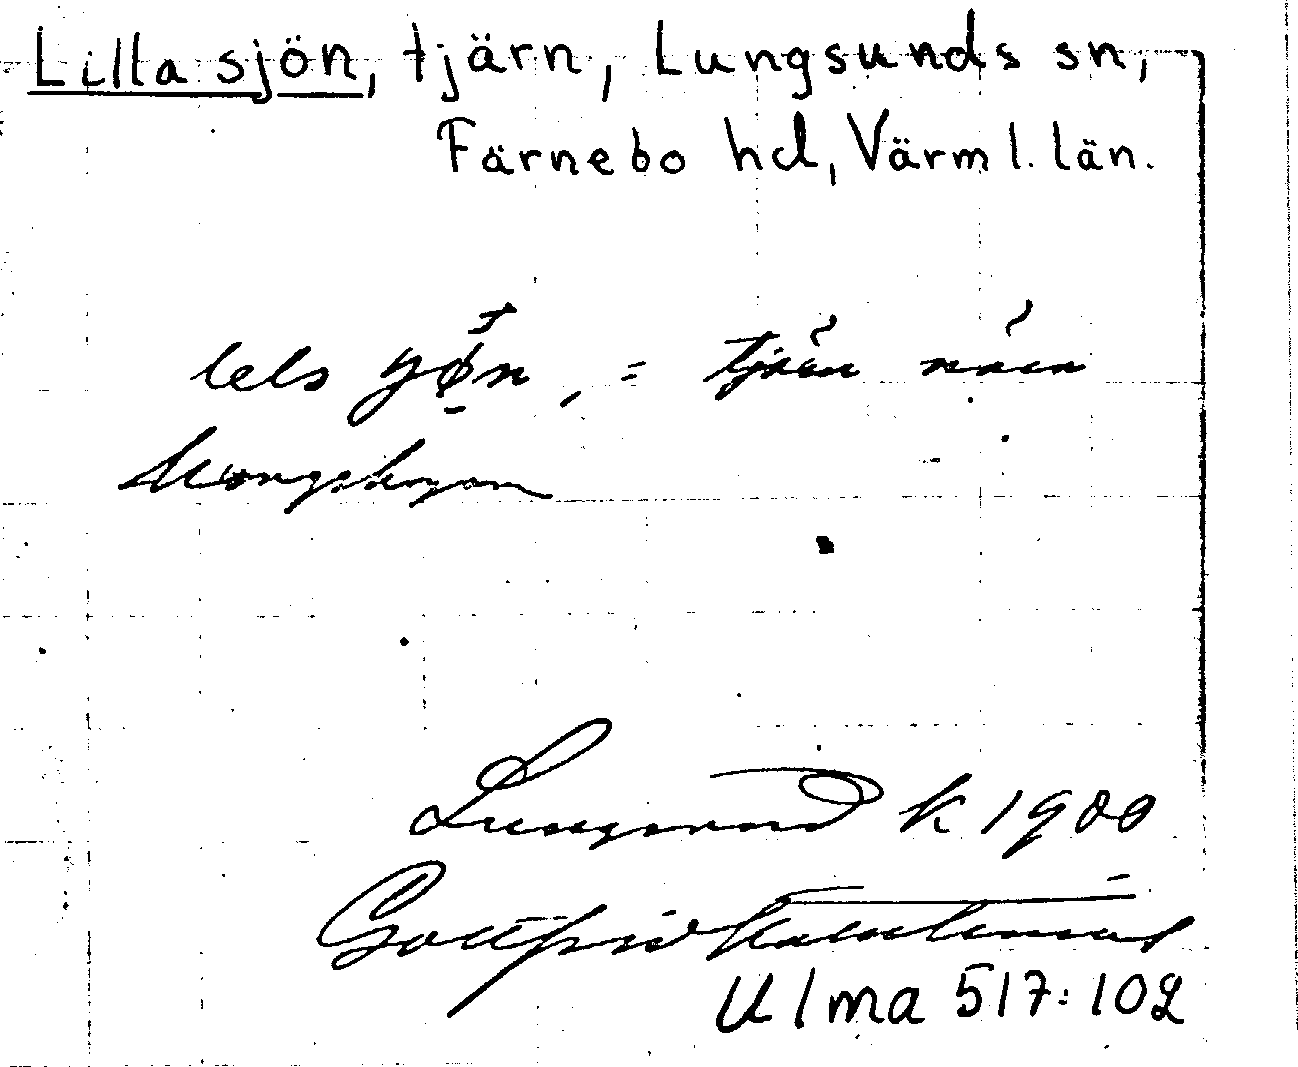 Lilla sjön, tjärn, Lungsunds sn,
Färnebo hd, Värml. län.
, = tjärn nära
Lungsund k 1900
Gottfrid Kallstenius
Ulma 517:102